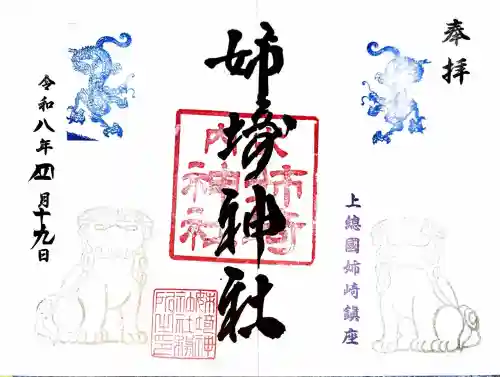 奉拝
上總國姉崎鎮座
姉埼神社
姉埼神
社社務
所之印
令和八年四月十九日